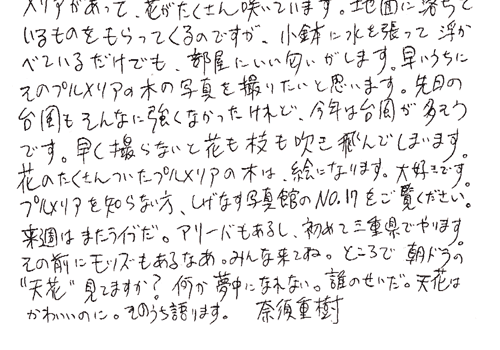 メリアがあって、花がたくさん咲いています。地面に落ちて
いるものをもらってくるのですが、小鉢に水を張って浮か
べているだけでも、部屋にいい匂いがします。早いうちに
そのプルメリアの木の写真を撮りたいと思います。先日の
台風もそんなに強くなかったけれど、今年は台風が多そう
です。早く撮らないと花も枝も吹き飛んでしまいます。
花のたくさんついたプルメリアの木は、絵になります。大好きです。
プルメリアを知らない方、しげなす写真館のNO.17をご覧ください。
来週はまたライブだ。アリーバもあるし、初めて三重県でやります。
その前にモッズもあるなあ。みんな来てね。ところで朝ドラの
"天花"見てますか?何か夢中になれない。誰のせいだ。天花は
かわいいのに。そのうち語ります。 奈須重樹